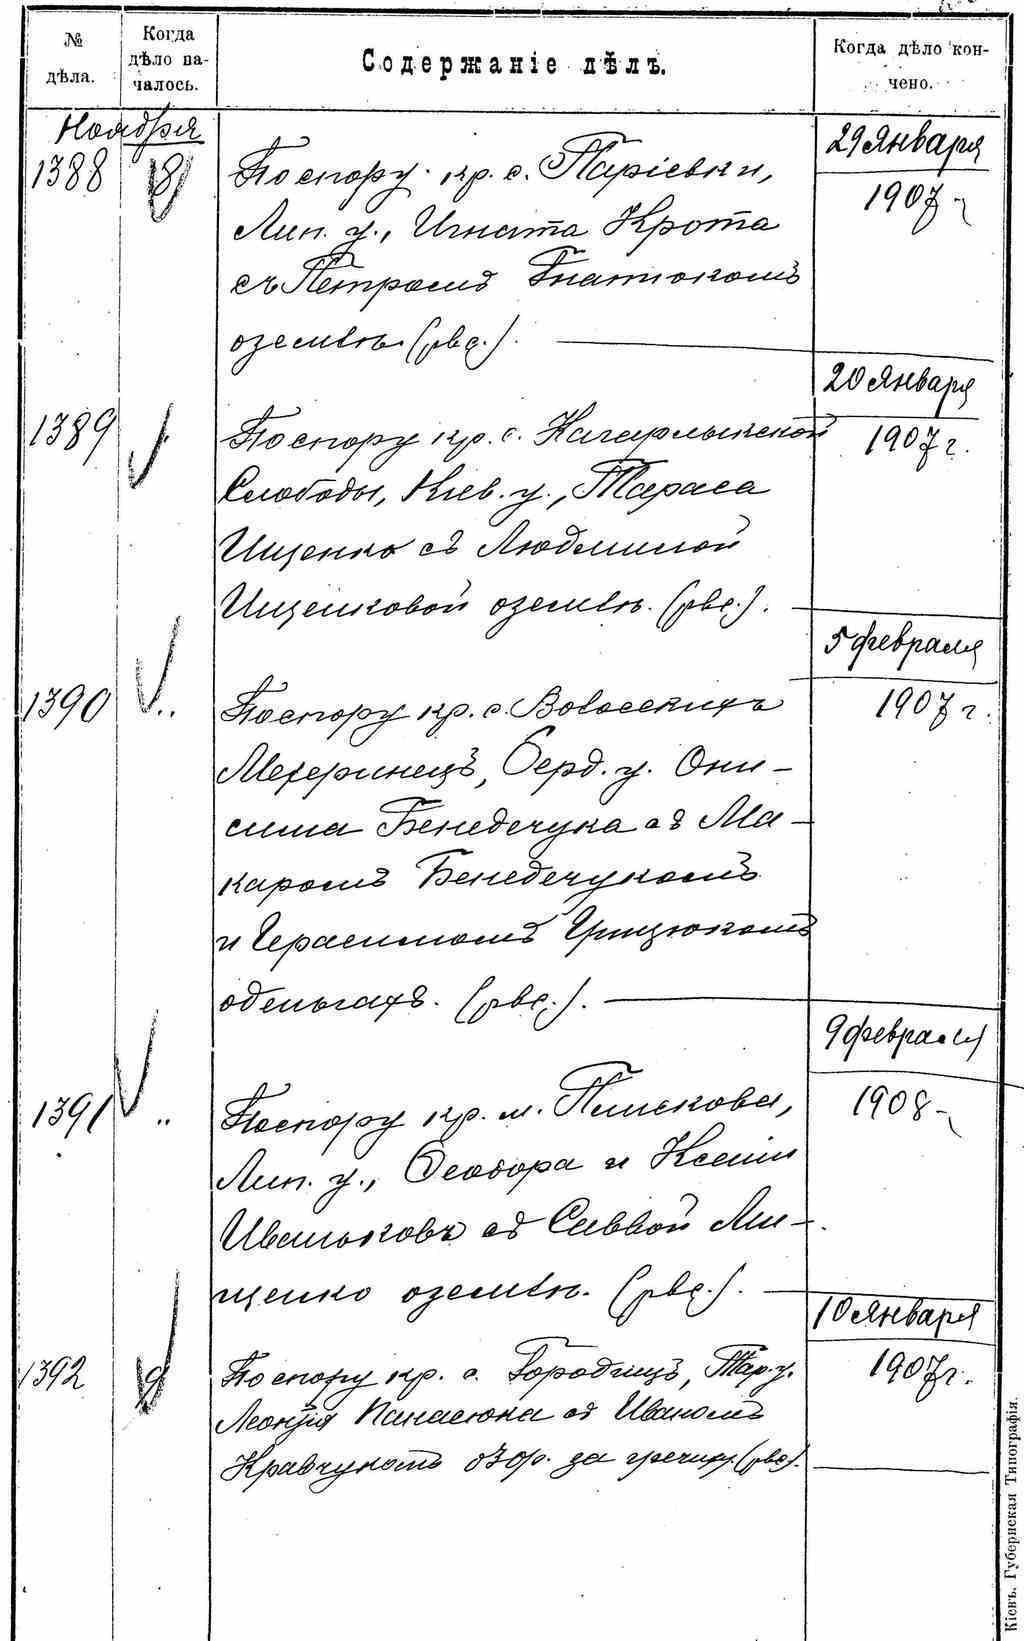 № дѣла.
Когда дѣло началось.
Содержаніе дѣлъ.
Когда дѣло кончено.
Ноября
1388
8
По спору кр. с. Паріевки,
Лип. у., Игната Крота
съ Петромъ Гнатюкомъ
о землѣ. (рвс.).
29 Января
1907
1389
По спору кр. с. Кагарлыкской
Слободы, Кіев. у., Тараса
Ищенко съ Людмилой
Ищенковой о землѣ. (рвс.).
20 Января
1907 г.
1390
По спору кр. с.
Махаринецъ, Берд. у. Они-
сима Бенедечука съ Ма-
каромъ Бенедечукомъ
и Герасимомъ Грицюкомъ
о деньгахъ. (рвс.).
5 февраля
1907 г.
1391
„
По спору кр. м. Плискова,
Лип. у., Ѳеодора и Ксеніи
Иваньковъ съ Саввой Ми-
щенко о землѣ. (рвс.).
9 февраля
1908
1392
9
По спору кр. с. Городищъ, Тар. у.
Леонтія Панасюка съ Иваномъ
Кравчукомъ о 30 р. за гречку (рвс).
10 Января
1907 г.
Кіевъ. Губернская Типографія.